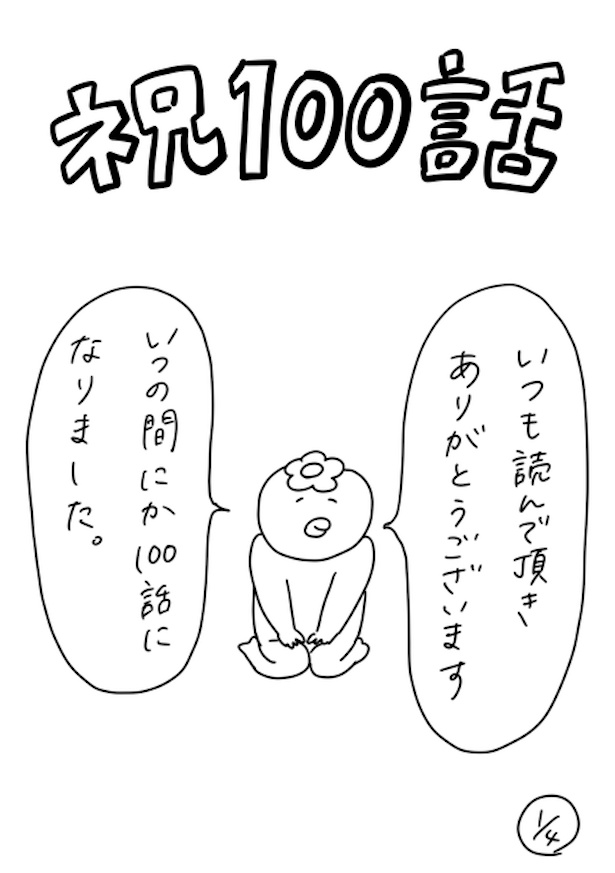 祝100話
いつも読んで頂き
ありがとうございます
いつの間にか100話に
なりました。
1/4